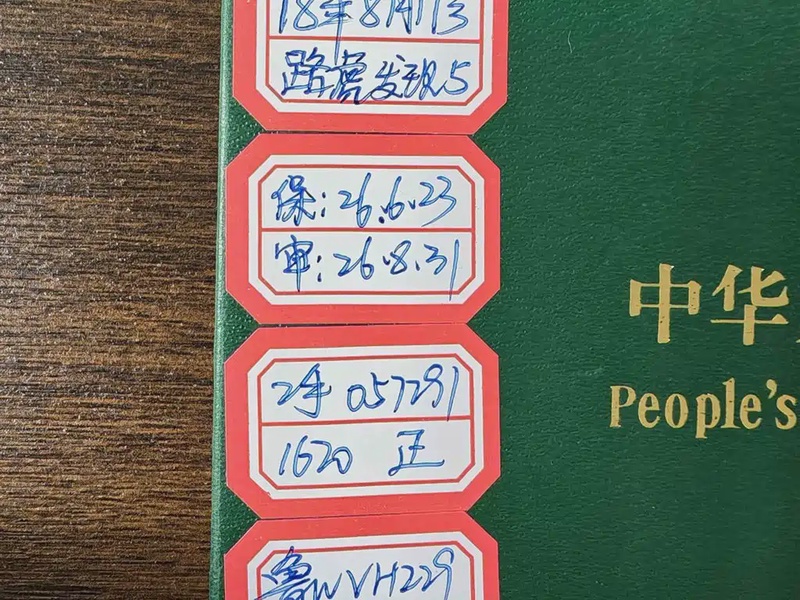 18年8月113
路虎发现5
保:26.6.23
审:26.8.31
2手 057291
1620 正
鲁WVH229
中华
People's